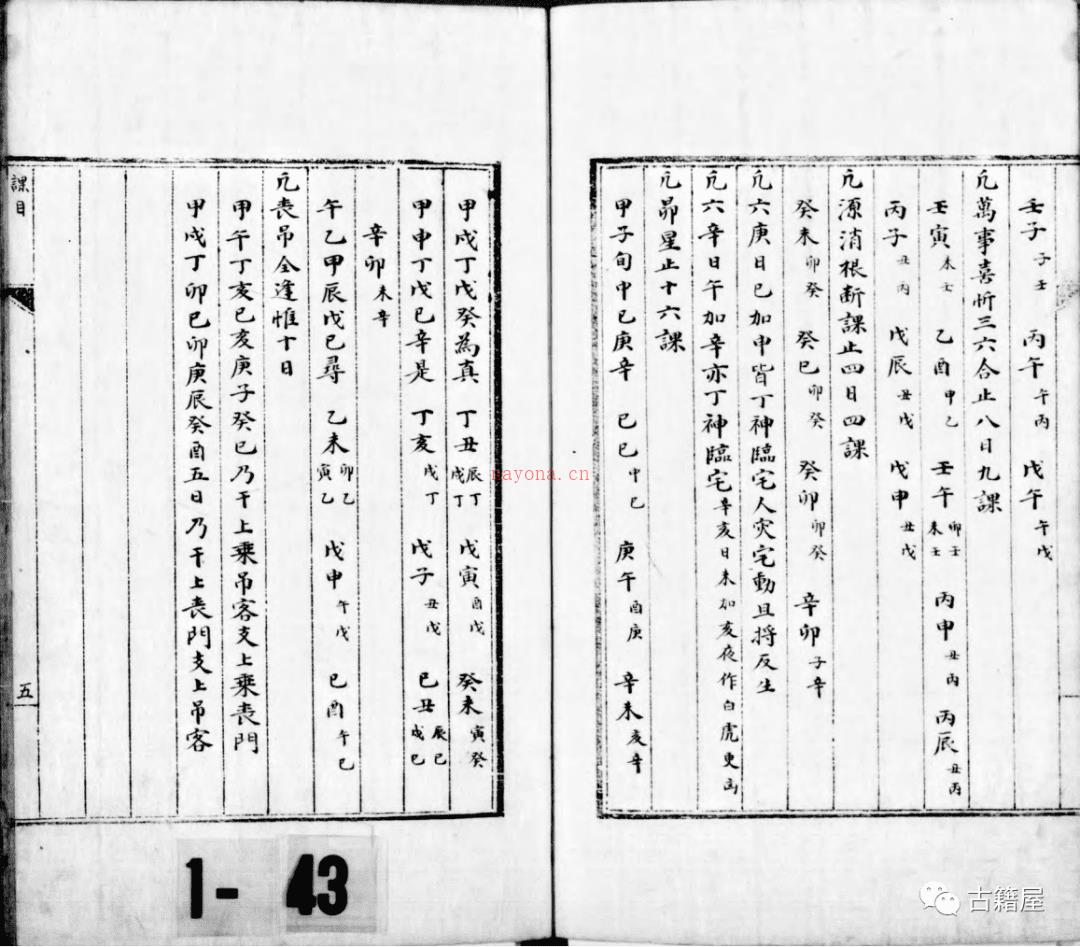 壬子 子壬 丙午 午丙 戊午 午戊
凢萬事喜忻三六合止八日九課
壬寅 未壬 乙酉 申乙 壬午 卯壬 未壬 丙申 丑丙 丙辰 丑丙
丙子 丑丙 戊辰 丑戊 戊申 丑戊
凢源消根断課止四日四課
癸未 卯癸 癸巳 卯癸 癸卯 卯癸 辛卯 子辛
凢六庚日巳加申皆丁神臨宅人灾宅動且将反生
凢六辛日午加辛亦丁神臨宅 辛亥日未加亥夜作白虎更凶
凢昴星止十六課
甲子旬中巳庚辛 巳巳 申巳 庚午 酉庚 辛未 亥辛
甲戌丁戊癸為真 丁丑 辰丁 戌丁 戊寅 酉戊 癸未 寅癸
甲申丁戊巳辛是 丁亥 戌丁 戊子 丑戊 巳丑 辰巳 戌巳
辛卯 未辛
午乙甲辰戊巳尋 乙未 卯乙 寅乙 戊申 午戊 巳酉 午巳
凢喪吊全逢惟十日
甲午丁亥巳亥庚子癸巳乃干上乘吊客支上乘喪門
甲戌丁卯巳卯庚辰癸酉五日乃干上喪門支上吊客
課目
五
nayona.cn
1- 43
古籍屋